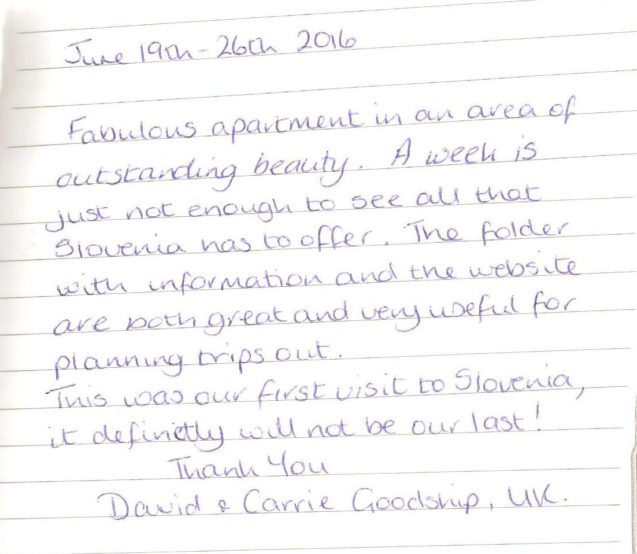 June 19th - 26th 2016
Fabulous apartment in an area of
outstanding beauty. A week is
just not enough to see all that
Slovenia has to offer. The folder
with information and the website
are both great and very useful for
planning trips out.
This was our first visit to Slovenia,
it definetly will not be our last!
Thank You
David & Carrie Goodship, UK.